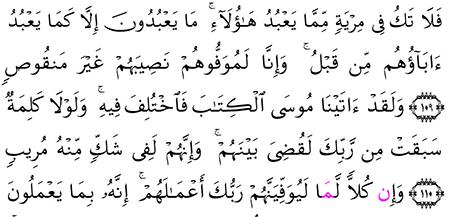 فَلَا تَكُ فِى مِرْيَةٍ مِّمَّا يَعْبُدُ هَٰٓؤُلَآءِ ۚ مَا يَعْبُدُونَ إِلَّا كَمَا يَعْبُدُ
ءَابَآؤُهُم مِّن قَبْلُ ۚ وَإِنَّا لَمُوَفُّوهُمْ نَصِيبَهُمْ غَيْرَ مَنقُوصٍ
﴿١٠٩﴾ وَلَقَدْ ءَاتَيْنَا مُوسَى ٱلْكِتَٰبَ فَٱخْتُلِفَ فِيهِ ۚ وَلَوْلَا كَلِمَةٌ
سَبَقَتْ مِن رَّبِّكَ لَقُضِىَ بَيْنَهُمْ ۚ وَإِنَّهُمْ لَفِى شَكٍّ مِّنْهُ مُرِيبٍ
﴿١١٠﴾ وَإِن كُلًّا لَّمَا لَيُوَفِّيَنَّهُمْ رَبُّكَ أَعْمَٰلَهُمْ ۚ إِنَّهُۥ بِمَا يَعْمَلُونَ